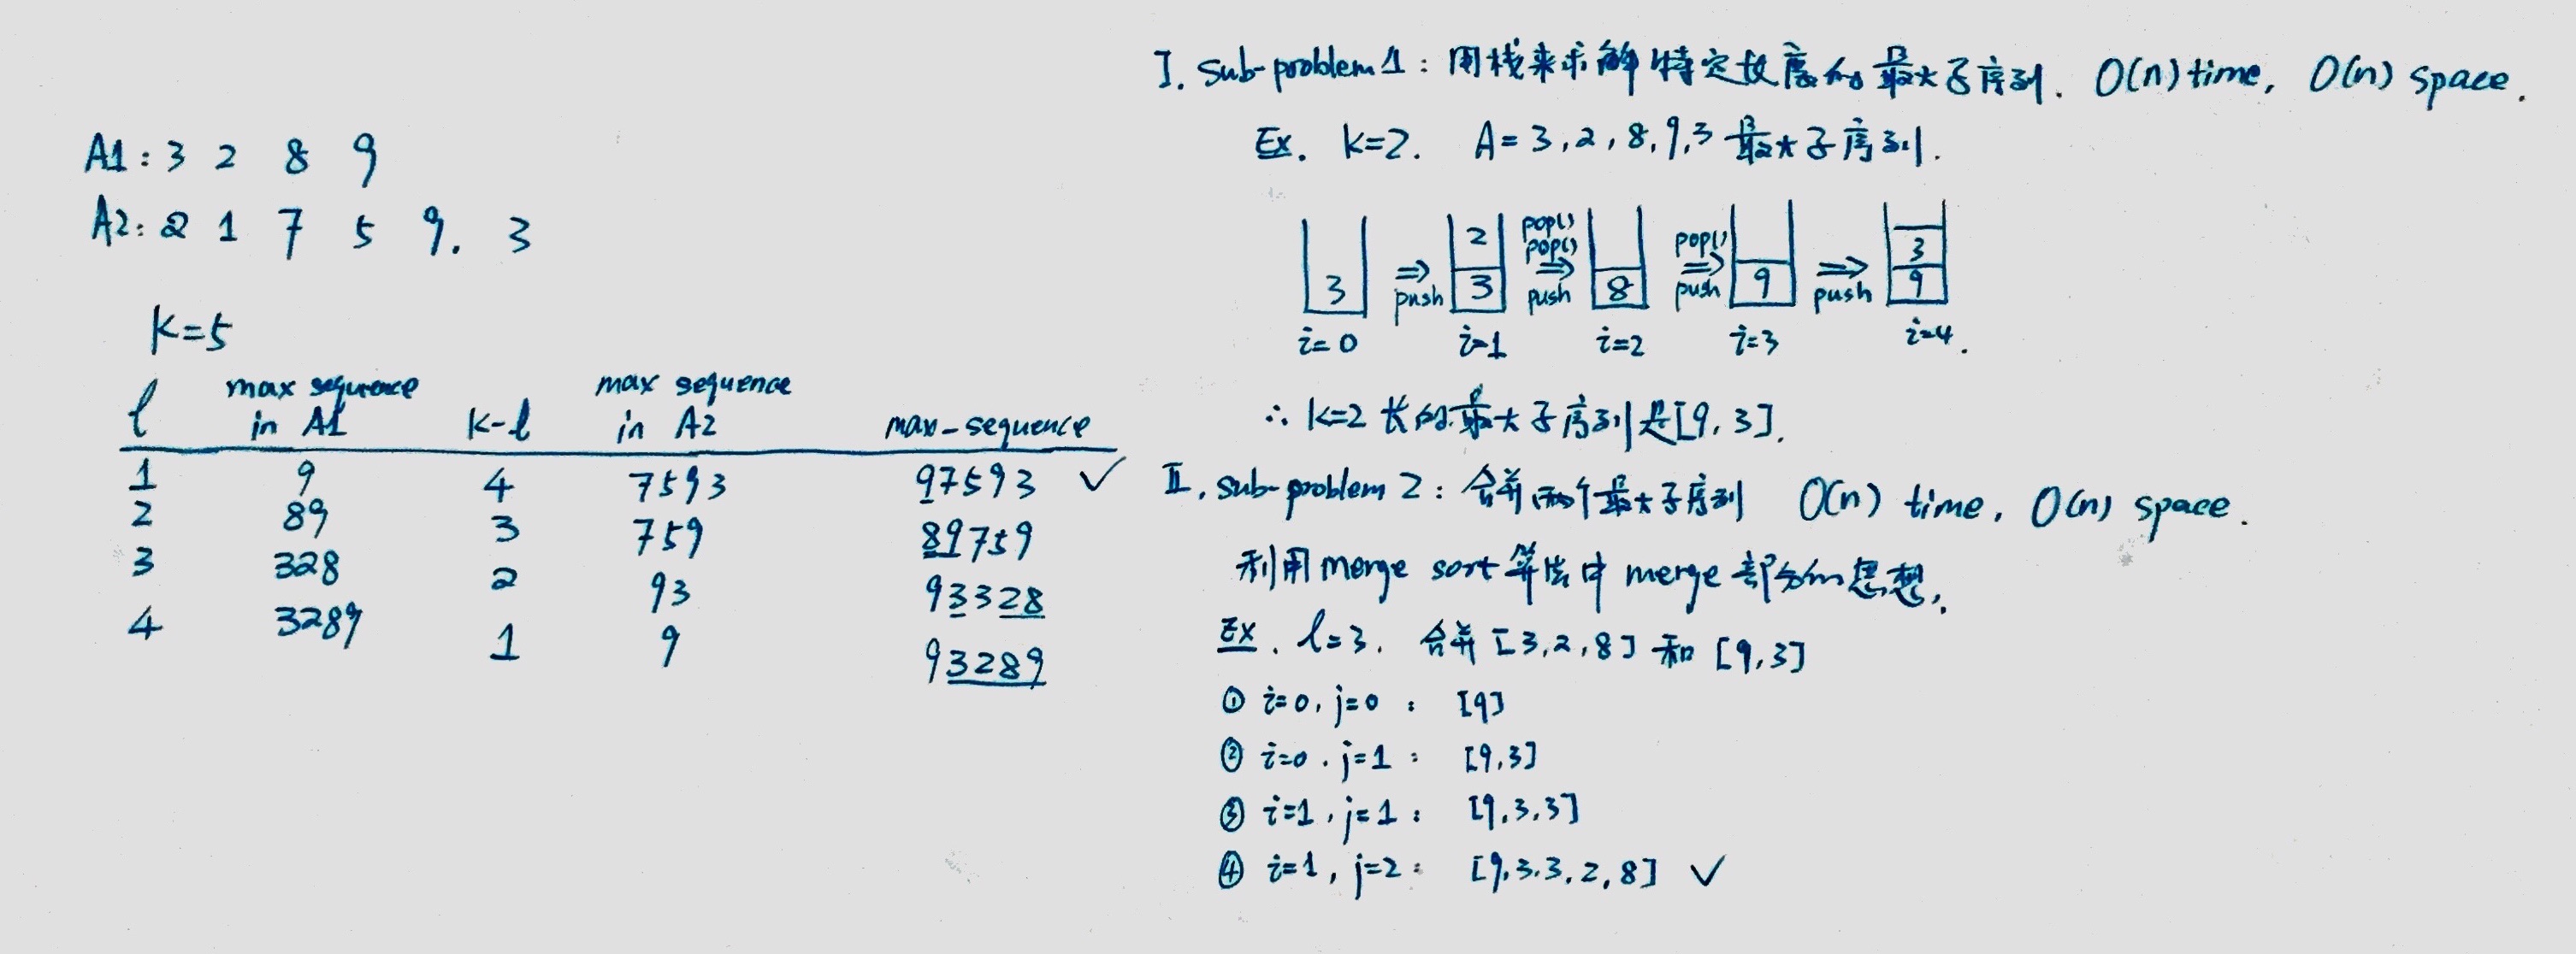 A1: 3 2 8 9
A2: 2 1 7 5 9. 3
K=5
l max sequence in A1 K-l max sequence in A2 max-sequence
1 9 4 7593 97593 ✓
2 89 3 759 89759
3 328 2 93 93328
4 3289 1 9 93289
I. sub-problem 1: 用栈来求解特定长度的最大子序列. O(n) time, O(n) space.
Ex. K=2. A=3,2,8,9,3 最大子序列.
3 ⇒ push 2 3 pop() pop() ⇒ push 8 pop() ⇒ push 9 ⇒ push 3 9
i=0 i=1 i=2 i=3 i=4.
∴ K=2 长的最大子序列是[9,3].
II. sub-problem 2: 合并两个最大子序列 O(n) time, O(n) space.
利用 merge sort 算法中 merge 部分的思想.
Ex. l=3. 合并 [3,2,8] 和 [9,3]
① i=0, j=0: [9]
② i=0. j=1: [9,3]
③ i=1, j=1: [9,3,3]
④ i=1, j=2: [9,3.3.2,8] ✓